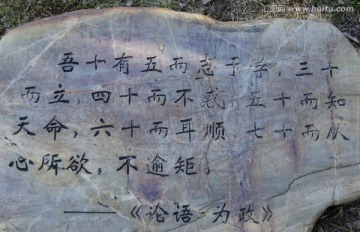 www.huitu.com
吾十有五而志于学，三十
而立，四十而不惑，五十而知
天命，六十而耳顺，七十而从
心所欲，不逾矩。
——《论语·为政》